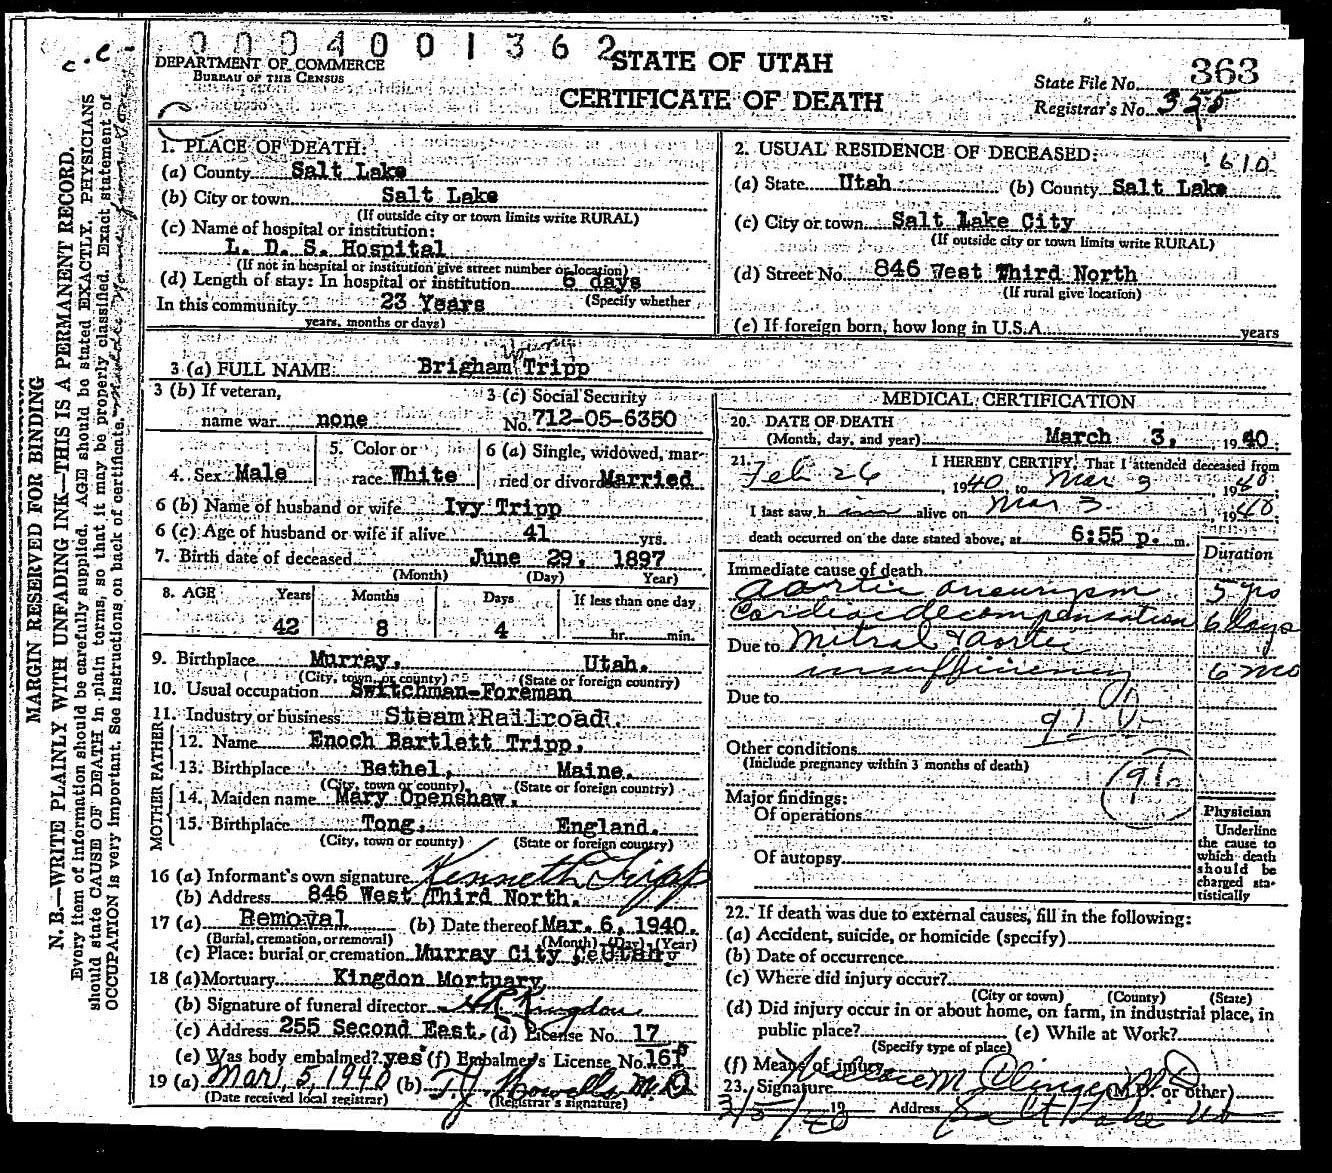 c.c.-
0004001362
DEPARTMENT OF COMMERCE
BUREAU OF THE CENSUS
STATE OF UTAH
CERTIFICATE OF DEATH
State File No. 363
Registrar's No. 355
MARGIN RESERVED FOR BINDING
N. B.—WRITE PLAINLY WITH UNFADING INK—THIS IS A PERMANENT RECORD.
Every item of information should be carefully supplied. AGE should be stated EXACTLY. PHYSICIANS
should state CAUSE OF DEATH in plain terms, so that it may be properly classified. Exact statement of
OCCUPATION is very important. See instructions on back of certificate.
1. PLACE OF DEATH:
(a) County Salt Lake
(b) City or town Salt Lake
(If outside city or town limits write RURAL)
(c) Name of hospital or institution:
L. D. S. Hospital
(If not in hospital or institution give street number or location)
(d) Length of stay: In hospital or institution 6 days
In this community 23 Years (Specify whether
years, months or days)
2. USUAL RESIDENCE OF DECEASED: 610
(a) State Utah (b) County Salt Lake
(c) City or town Salt Lake City
(If outside city or town limits write RURAL)
(d) Street No. 846 West Third North
(If rural give location)
(e) If foreign born, how long in U.S.A. years
3 (a) FULL NAME: Brigham Young Tripp
3 (b) If veteran,
name war none
3 (c) Social Security
No. 712-05-6350
4. Sex Male
5. Color or
race White
6 (a) Single, widowed, mar-
ried or divorced Married
6 (b) Name of husband or wife Ivy Tripp
6 (c) Age of husband or wife if alive 41 yrs.
7. Birth date of deceased June 29, 1897
(Month) (Day) Year)
8. AGE Years Months Days If less than one day
42 8 4 hr. min.
9. Birthplace Murray, Utah.
(City, town, or county) (State or foreign country)
10. Usual occupation Switchman-Foreman
11. Industry or business Steam Railroad.
FATHER
12. Name Enoch Bartlett Tripp.
13. Birthplace Bethel, Maine.
(City, town or county) (State or foreign country)
MOTHER
14. Maiden name Mary Openshaw.
15. Birthplace Tong, England.
(City, town or county) (State or foreign country)
16 (a) Informant's own signature Kenneth Tripp
(b) Address 846 West Third North.
17 (a) Removal (b) Date thereof Mar. 6, 1940.
(Burial, cremation, or removal) (Month) (Day) (Year)
(c) Place: burial or cremation Murray City
18 (a) Mortuary Kingdon Mortuary
(b) Signature of funeral director
(c) Address 255 Second East. (d) License No. 17
(e) Was body embalmed? yes (f) Embalmer's License No.
19 (a) Mar. 5, 1940 (b) T.J. Howells M.D
(Date received local registrar) (Registrar's signature)
MEDICAL CERTIFICATION
20. DATE OF DEATH
(Month, day, and year) March 3, 1940.
21. I HEREBY CERTIFY, That I attended deceased from
Feb 26, 1940 to Mar 3, 1940;
I last saw him alive on Mar 3. 1940.
death occurred on the date stated above, at 6:55 p. m.
Duration
Immediate cause of death
aortic aneurysm 5 yrs
Cardiac decompensation 6 days
Due to Mitral & aortic
insufficiency 6 mo
Due to
Other conditions
(Include pregnancy within 3 months of death)
Major findings:
Of operations
Of autopsy
Physician
Underline
the cause to
which death
should be
charged sta-
tistically
22. If death was due to external causes, fill in the following:
(a) Accident, suicide, or homicide (specify)
(b) Date of occurrence
(c) Where did injury occur?
(City or town) (County) (State)
(d) Did injury occur in or about home, on farm, in industrial place, in
public place? (e) While at Work?
(Specify type of place)
(f) Means of injury
23. Signature (M.D. or other)
3/5/40 19 Address Salt Lake